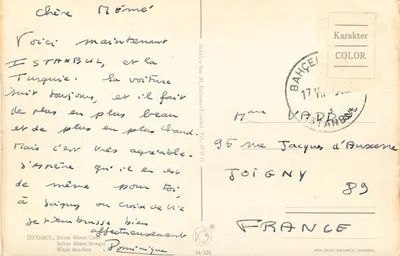 Chère Mémé
Voici maintenant
ISTANBUL, et la
Turquie. la voiture
suit toujours, et il fait
de plus en plus beau
et de plus en plus chaud.
Mais c'est très agréable.
J'espère qu'il en est
de même pour toi
à Joigny ou croix de Vie
je t'embrasse bien
affectueusement
Dominique
İSTANBUL, Sultan Ahmet Camii
Sultan Ahmet Mosque
Karakter
COLOR
BAHÇE
17 VII
İSTANBUL
Mme
95 rue Jacques d'Auxerre
JOIGNY
89
FRANCE